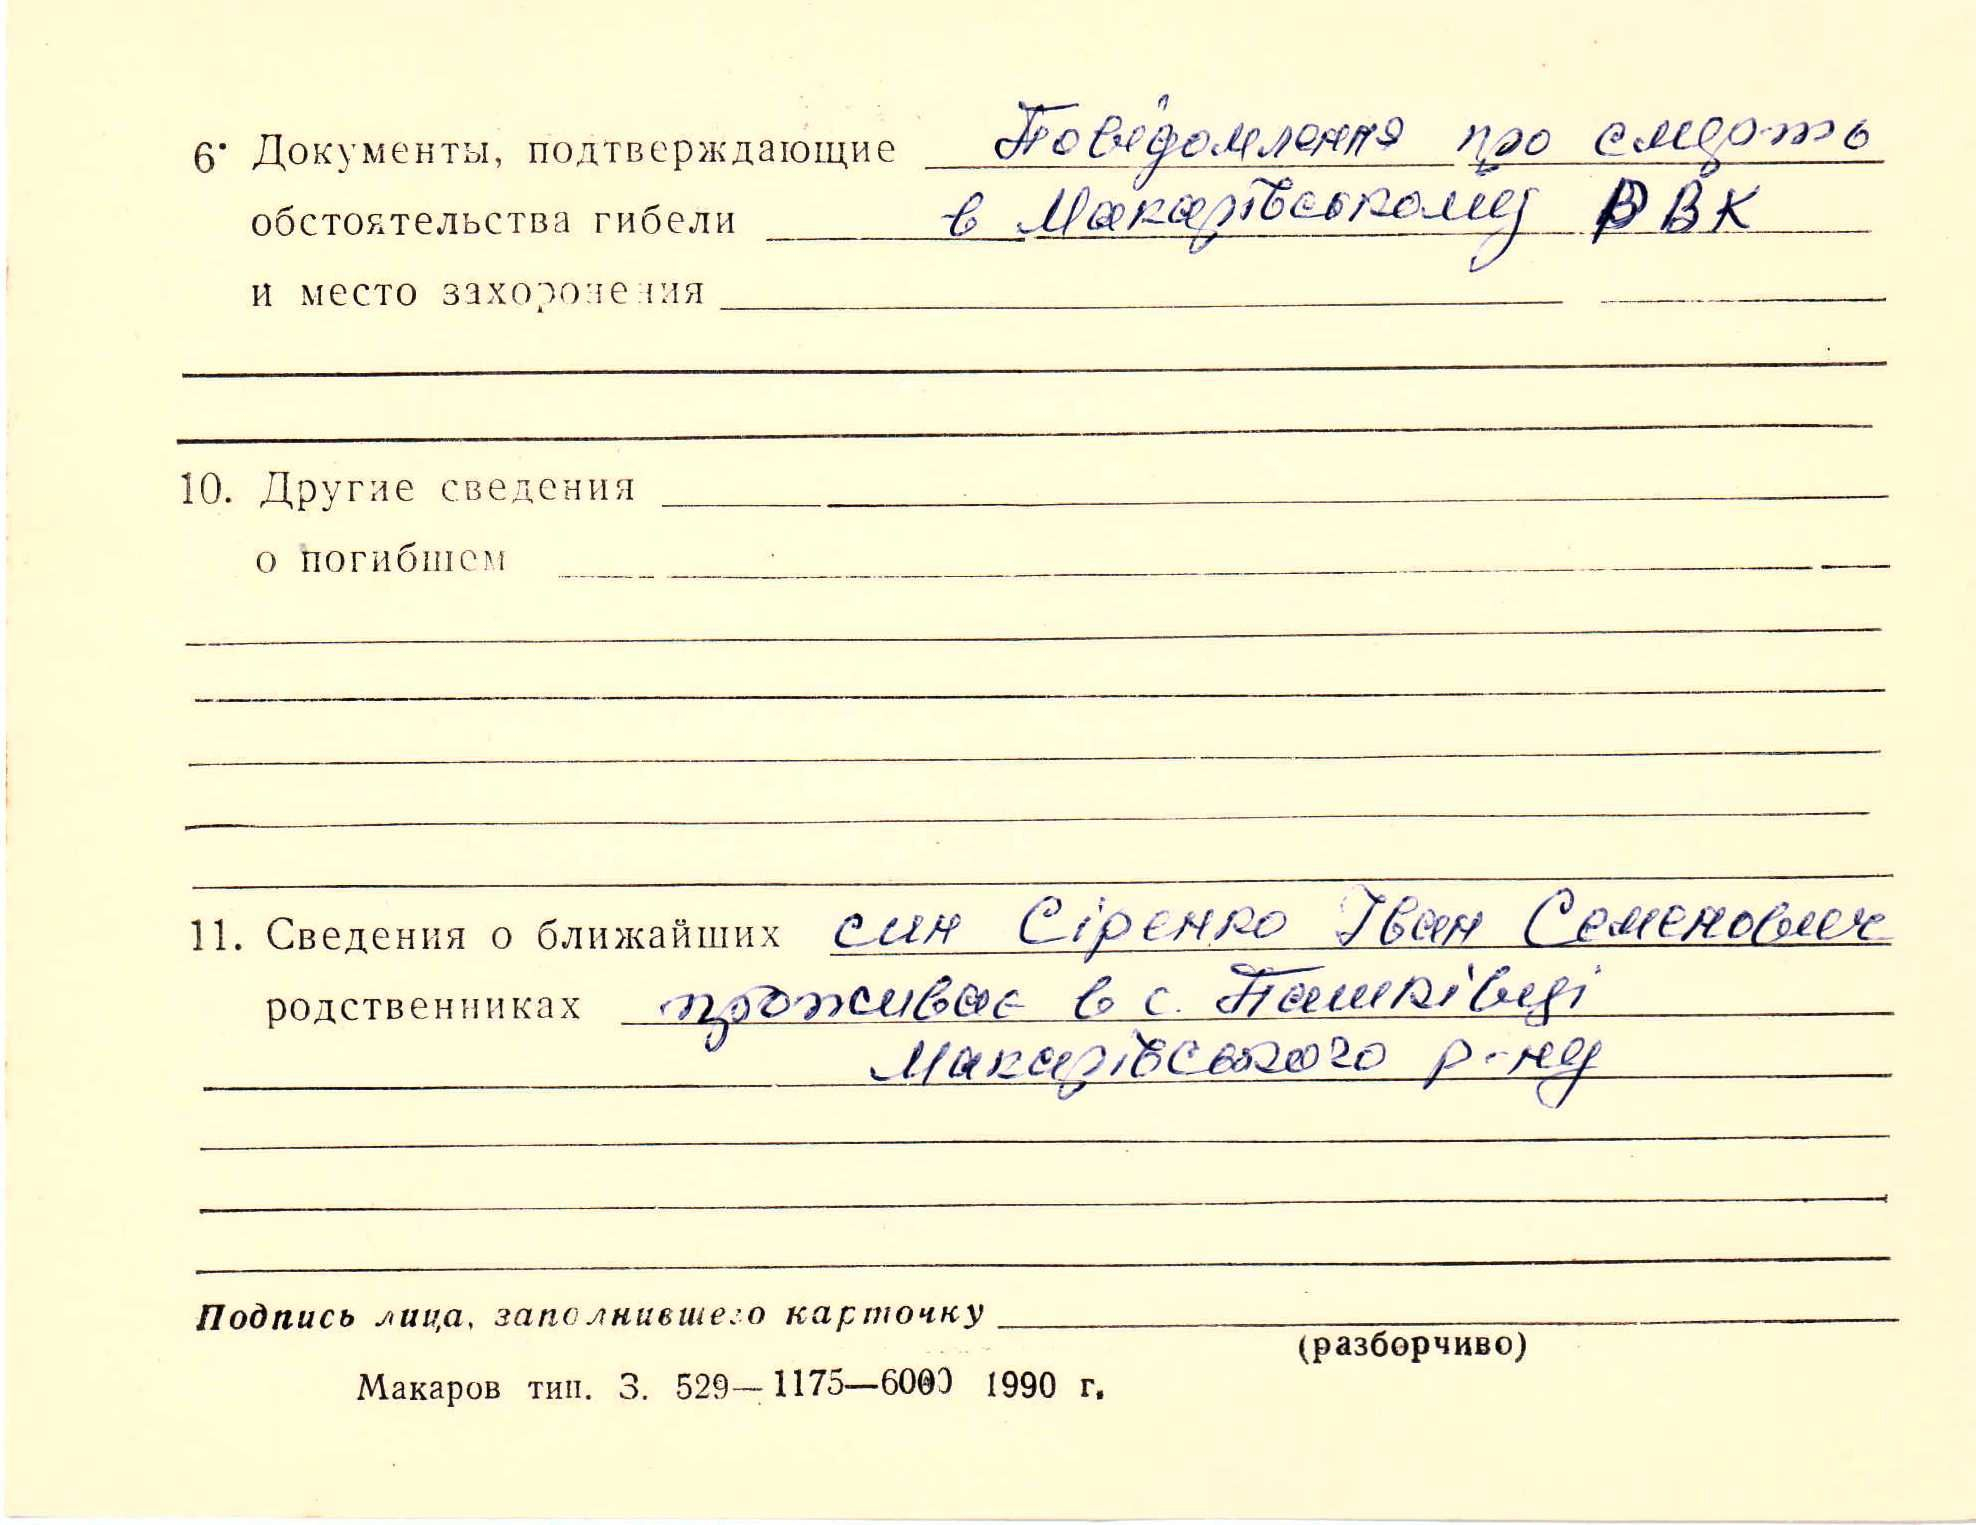 6. Документы, подтверждающие Повідомлення про смерть
обстоятельства гибели в Макарівському РВК
и место захоронения
10. Другие сведения
о погибшем
11. Сведения о ближайших син Сіренко Іван Семенович
родственниках проживає в с. Пашківці
Макарівського р-ну
Подпись лица, заполнившего карточку
(разборчиво)
Макаров тип. З. 529—1175—6000 1990 г.